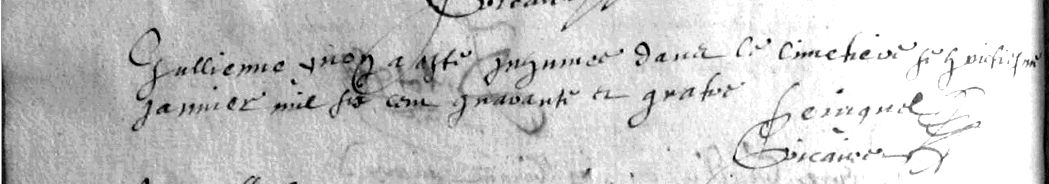 Gullienne a esté inhumee dans le cimetiere le huictiesme
janvier mil six cent quarante et quatre
vicaire